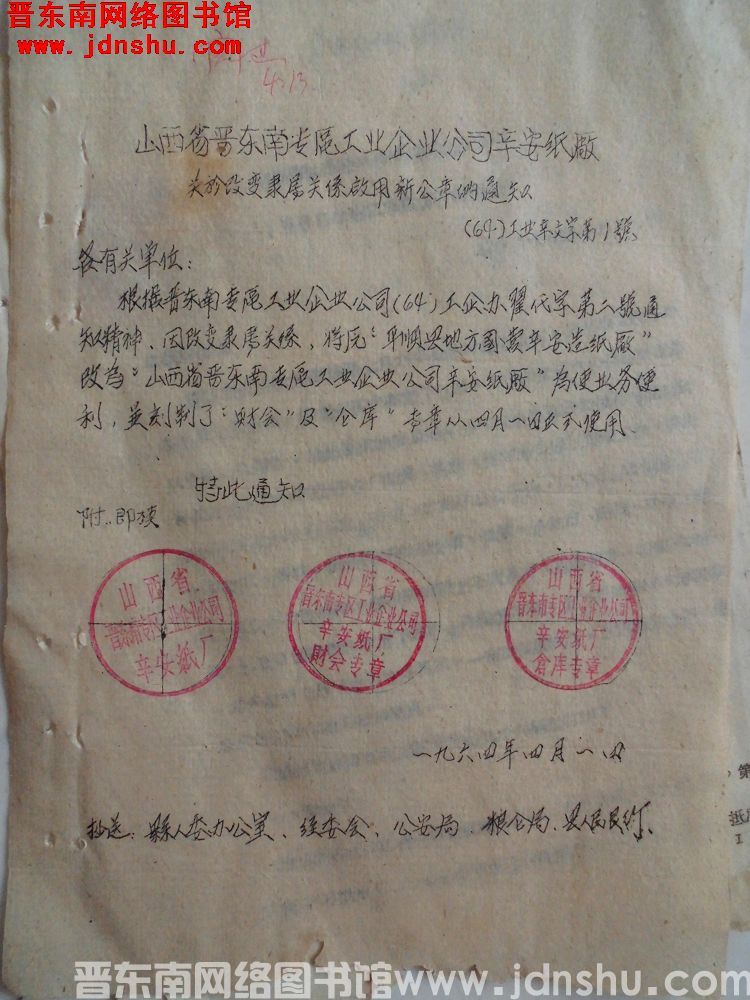 晋东南网络图书馆
www.jdnshu.com
4.13
山西省晋东南专区工业企业公司辛安纸廠
关於改变隶属关係啟用新公章的通知
(64)工业辛文字第1號
各有关单位:
根据晋东南专區工业企业公司(64)工企办 代字第二號通
知精神、因改变隶属关係,将原"平順县地方国营辛安造纸廠"
改为"山西省晋东南专區工业企业公司辛安纸廠"为便业务便
利,並刻制了"财会"及"仓库"专章从四月一日正式使用.
特此通知
附:印模
山西省
晋东南专区工业企业公司
辛安紙厂
山西省
晋东南专区工业企业公司
辛安紙厂
財会专章
山西省
晋东南专区工业企业公司
辛安紙厂
倉库专章
一九六四年四月一日
抄送:縣人委办公室、经委会、公安局、粮仓局、县人民
第
抵
晋东南网络图书馆 www.jdnshu.com